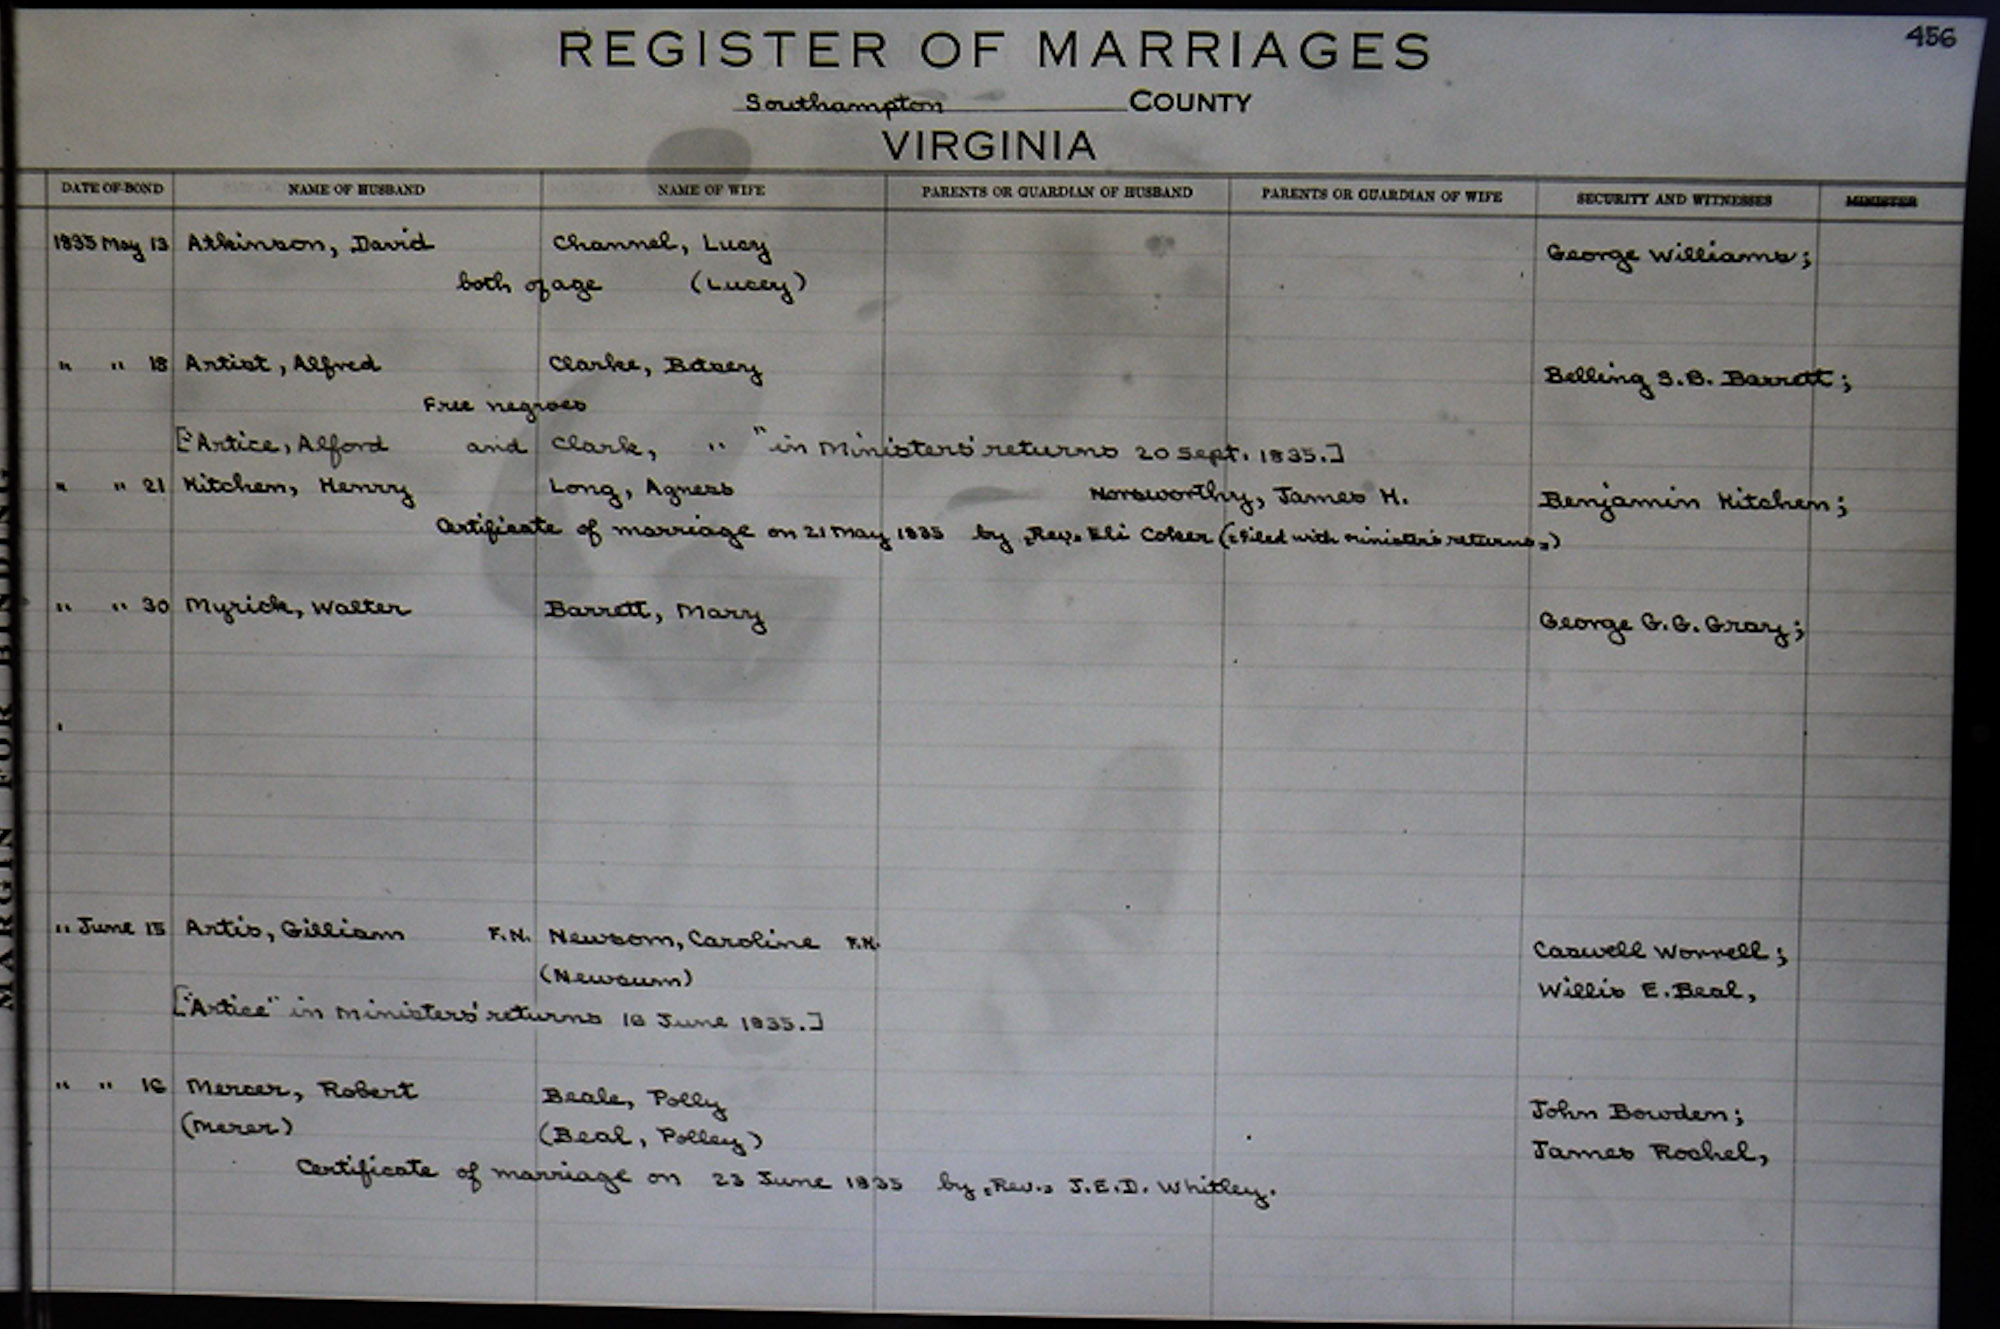 456
REGISTER OF MARRIAGES
Southampton COUNTY
VIRGINIA
DATE OF BOND NAME OF HUSBAND NAME OF WIFE PARENTS OR GUARDIAN OF HUSBAND PARENTS OR GUARDIAN OF WIFE SECURITY AND WITNESSES MINISTER
1835 May 13 Atkinson, David Channel, Lucy George Williams;
both of age (Lucey)
" " 18 Artist, Alfred Clarke, Belling S.B. Barrett;
Free negroes
["Artice, Alford and Clark, " " in Ministers' returns 20 Sept. 1835.]
" " 21 Kitchen, Henry Long, Agness Norsworthy, James H. Benjamin Kitchen;
Certificate of marriage on 21 May 1835 by [Rev.] Eli Coker (filed with ministers returns.)
" " 30 Myrick, Walter Barrett, Mary George G.G. Gray;
" June 15 Artis, Gilliam F.N. Newsom, Caroline F.N. Caswell Worrell;
(Newsum) Willis E. Beal,
["Artice" in ministers' returns 16 June 1835.]
" " 16 Mercer, Robert Beale, Polly John Bowden;
(Merer) (Beal, Polley) James Rochel,
Certificate of marriage on 23 June 1835 by [Rev.] J.E.D. Whitley.
MARGIN FOR BINDING